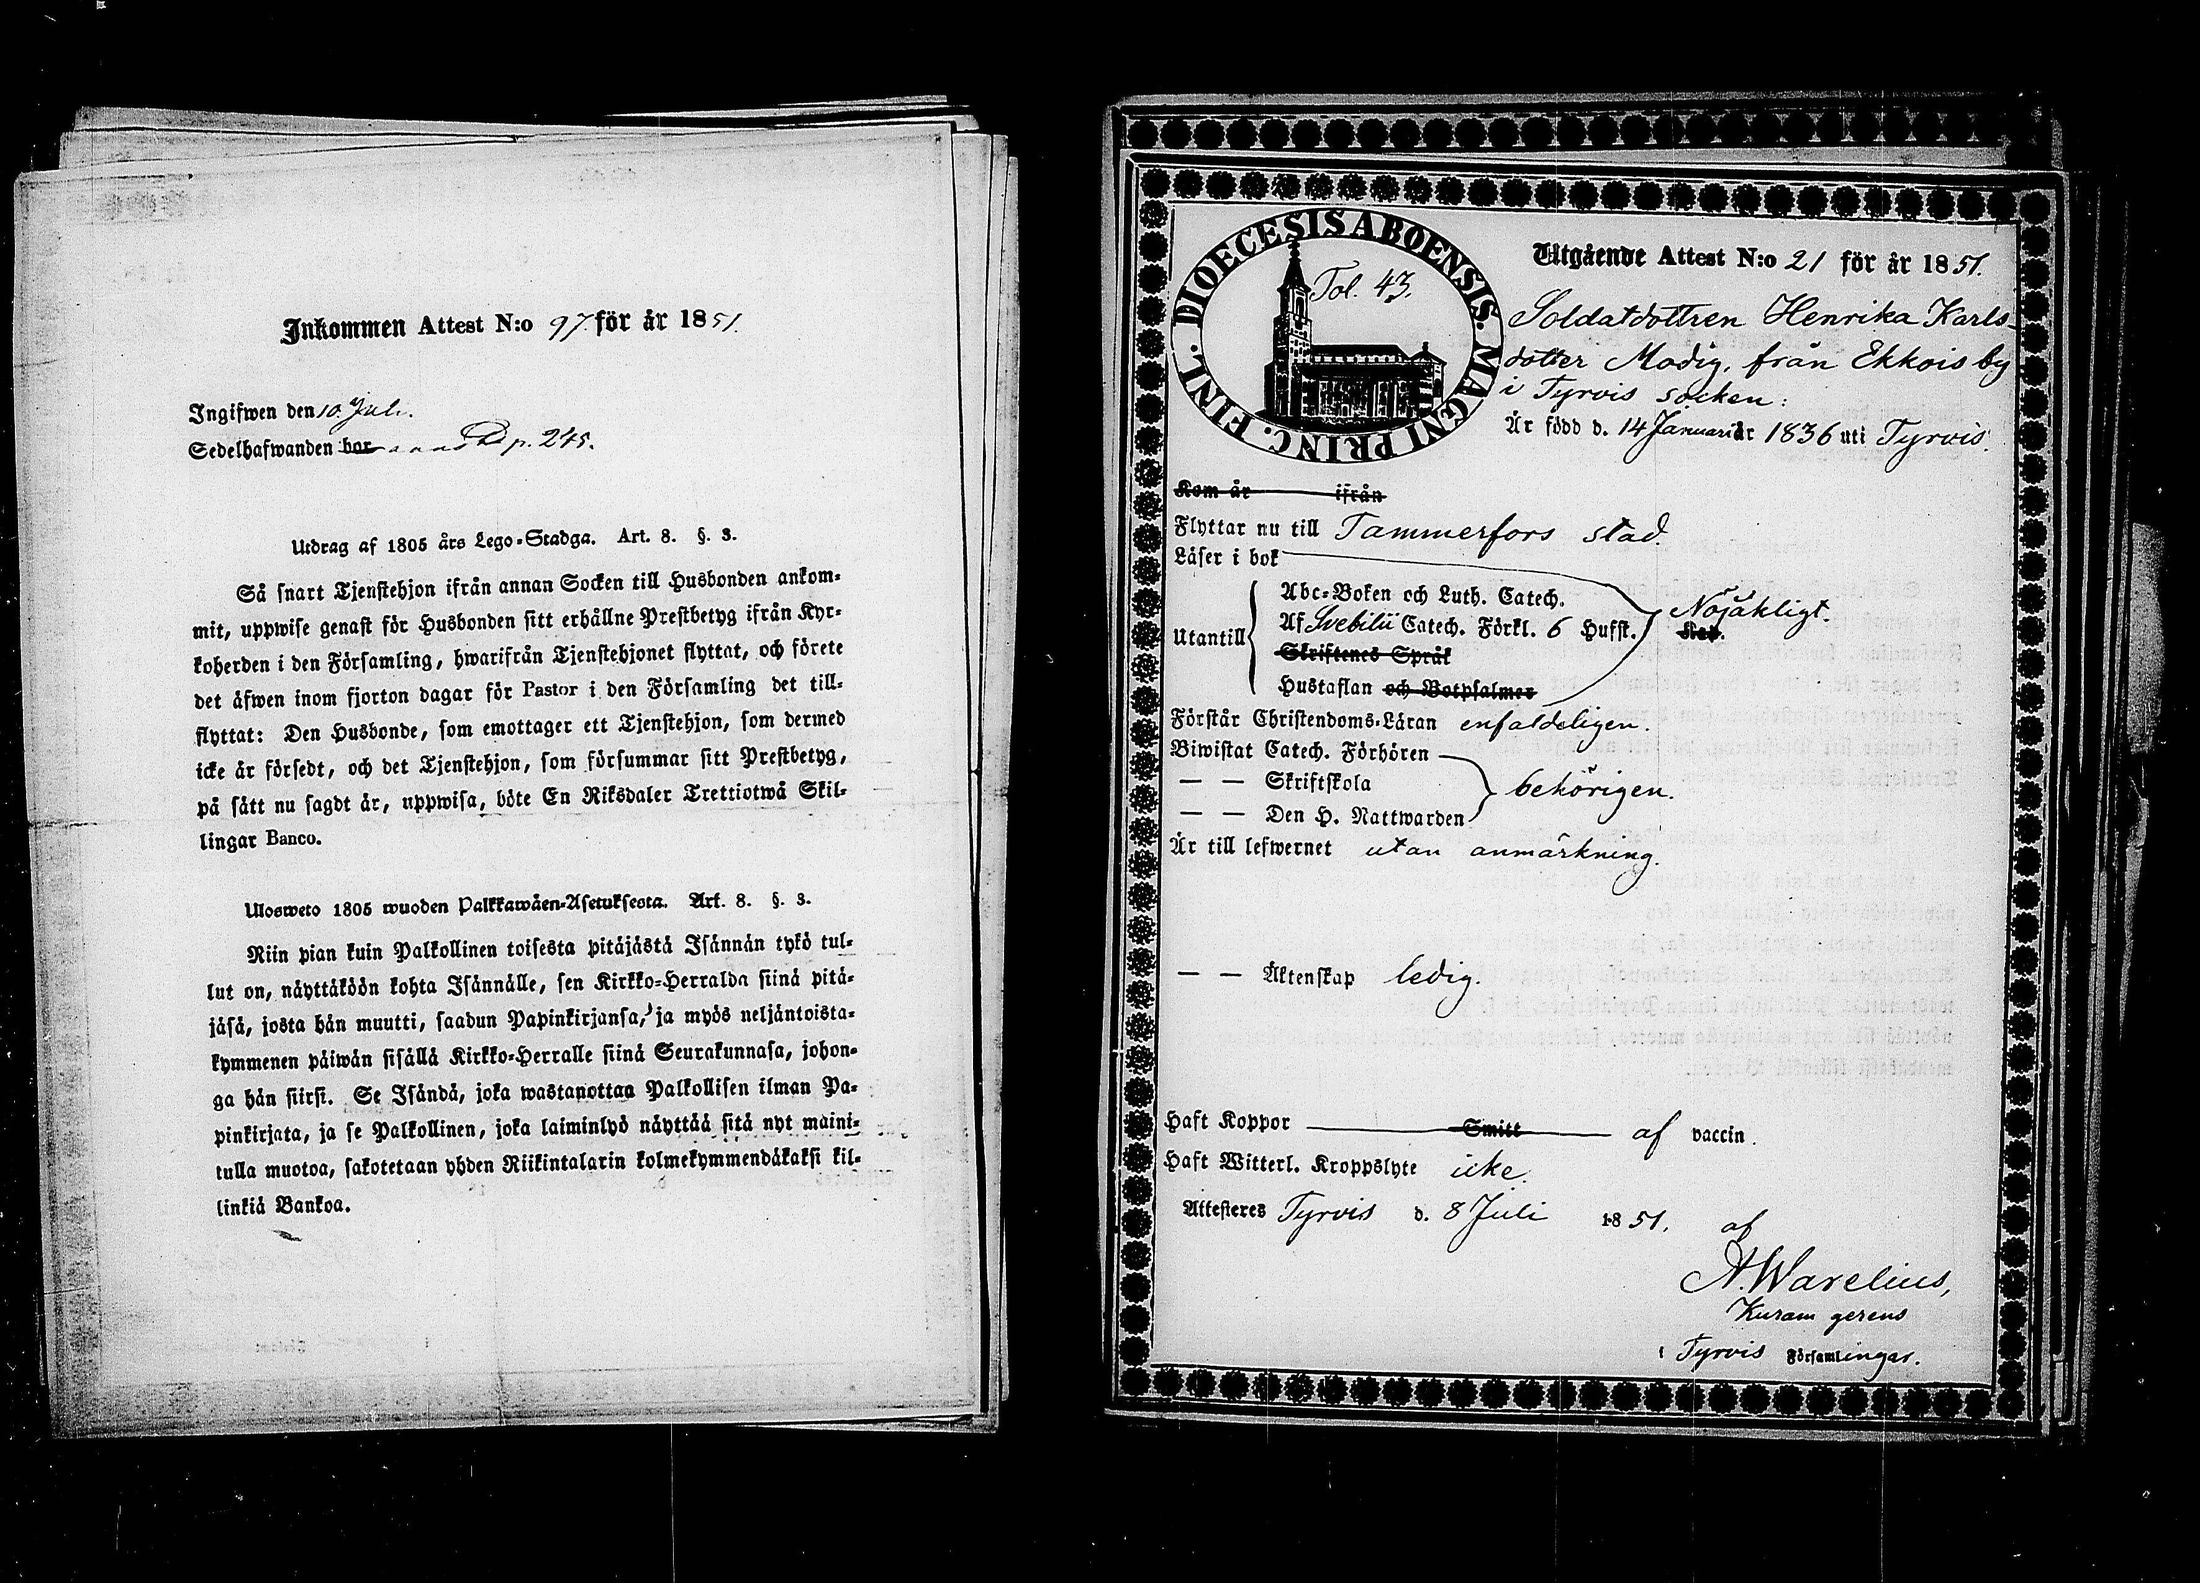 Inkommen Attest N:o 97 för år 1851.
Ingifwen den 10. Juli.
Sedelhafwanden bor p. 245.
Utdrag af 1805 års Lego-Stadga. Art. 8. §. 3.
Så snart Tjenstehjon ifrån annan Socken till Husbonden ankom-
mit, uppwise genast för Husbonden sitt erhållne Prestbetyg ifrån Kyr-
koherden i den Församling, hwarifrån Tjenstehjonet flyttat, och förete
det äfwen inom fjorton dagar för Pastor i den Församling det till-
flyttat: Den Husbonde, som emottager ett Tjenstehjon, som dermed
icke är försedt, och det Tjenstehjon, som försummar sitt Prestbetyg,
på sätt nu sagdt är, uppwisa, böte En Riksdaler Trettiotwå Skil-
lingar Banco.
Ulosweto 1805 wuoden Palkkawäen-Asetuksesta. Art. 8. §. 3.
Niin pian kuin Palkollinen toisesta pitäjästä Isännän tykö tul-
lut on, näyttäköön kohta Isännälle, sen Kirkko-Herralda siinä pitä-
jäsä, josta hän muutti, saadun Papinkirjansa, ja myös neljäntoista-
kymmenen päiwän sisällä Kirkko-Herralle siinä Seurakunnasa, johon-
ga hän siirsi. Se Isändä, joka wastanottaa Palkollisen ilman Pa-
pinkirjata, ja se Palkollinen, joka laiminlyö näyttää sitä nyt maini-
tulla muotoa, sakotetaan yhden Riikintalarin kolmekymmendäkaksi kil-
linkiä Bankoa.
DIOECESIS ABOENSIS. MAGNI PRINC. FINL.
Fol. 43.
Utgående Attest N:o 21 för år 1851.
Soldatdottren Henrika Karls-
dotter Modig, från Ekkois by
i Tyrvis socken:
Är född d. 14 Januari år 1836 uti Tyrvis.
Kom år ifrån
Flyttar nu till Tammerfors stad.
Läser i bok
Utantill
Abc-Boken och Luth. Catech.
Af Svebilii Catech. Förkl. 6 Hufst.
Skriftenes Språk
Hustaflan och Botpsalmer
Nöjaktligt.
Kap.
Förstår Christendoms-Läran enfaldeligen.
Biwistat Catech. Förhören
— — Skriftskola
— — Den H. Nattwarden
behörigen.
Är till lefwernet utan anmärkning.
— — Äktenskap ledig.
Haft Koppor Smitt af vaccin.
Haft Witterl. Kroppslyte icke.
Attesteres Tyrvis d. 8 Juli 1851. af
A. Warelius,
Kuram gerens
i Tyrvis Församlingar.